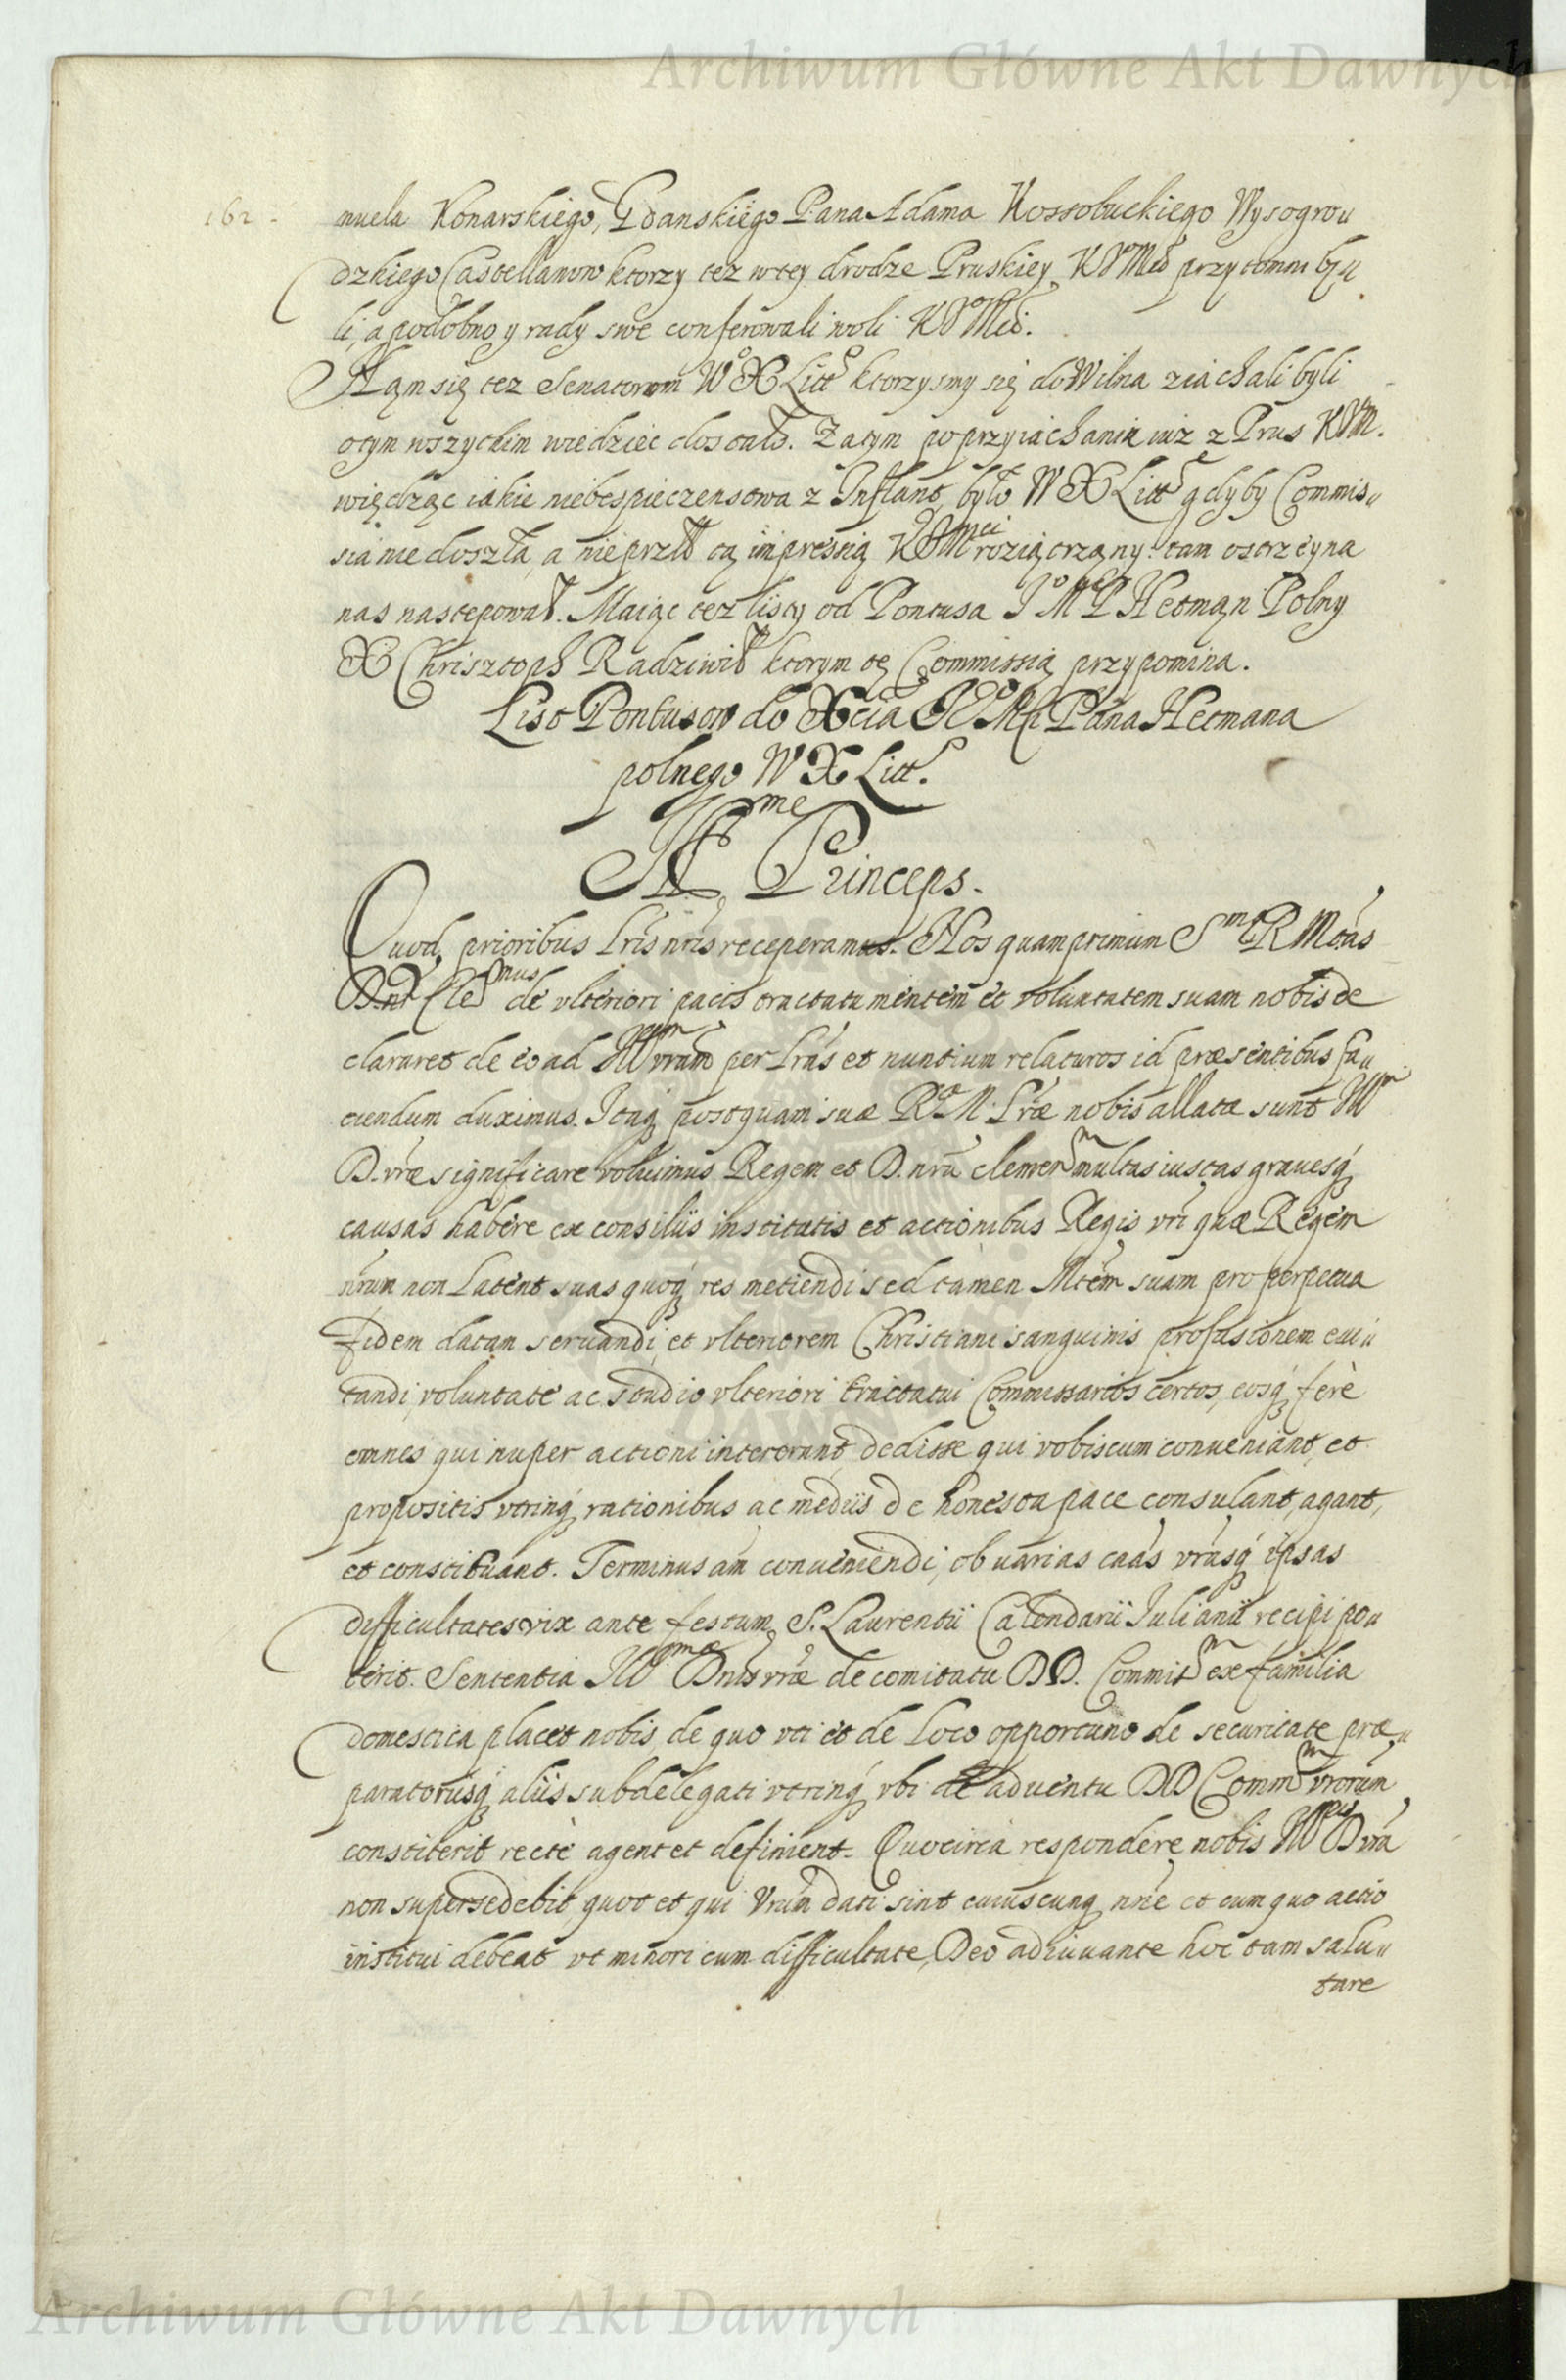 Archiwum Główne Akt Dawnych
162
nuela Konarskiego, Gdanskiego Pana Adama Kossobuckiego Wysogrou
dzkiego Castellanow ktorzy tez wtey drodze Pruskiey KJoMći przytomni byu
li, a podobno y rady swe conferowali woli KJoMći.
Nąm się tez Senatorom Wo X Litto ktorzysmy się do Wilna ziachali byli
otym wszyckim wiedziec dostało. Zatym poprzyiachaniu iuz z Prus KJM.
więdząc iakie niebespieczenstwa z Inflant, było W X Litt gdyby Commis„
sia nie doszła, a nieprzıł tą impressią KJMci roziątrząny: tam ostrzeyna
nas nastepował. Maiąc tez listy od Pontusa Jo M P Hetmąn Polny
X Chrisztoph Radziwił ktorym tę Commissią przypomina.
List Pontusow do Xcia JEoMći Pana Hetmana
polnego W X Litt.
Illme Princeps.
Quod prioribus lris nris receperamus. Nos quamprimum Sma R Mtas
Dnr Clemus de vlteriori pacis tractatu mentem et voluntatem suam nobis de
clararet de eo ad Illeum vram per lras et nuntium relaturos id præsentibus fa„
ciendum duximus. Itaq postquam suæ Ræ M. lræ nobis allatæ sunt Illm
D. vræ significare voluimus Regem et D. nrū clemenm multas iustas grauesq
causas habere ex consiliis institutis et actionibus Regis vri quæ Regem
nrum non latent suas quoq res metiendi sed tamen Mtem suam pro perpetua
fidem datam seruandi, et vlteriorem Christiani sanguinis profusionem eui„
tandi, voluntate ac studio vlteriori tractatui Commissarios certos, eosq fere
omnes qui nuper actioni interorunt, dedisse qui vobiscum conueniant, et
propositis vtrinq rationibus ac mediis de honesta pace consulant, agant,
et constituant. Terminus am conueniendi, ob uarias caas vrasq ipsas
difficultates vix ante festum S. Laurentii Calendarii Iulianii recipi po„
terit. Sententia Illmæ Dnis vræ de comitatu DD. Commism ex familia
domestica placet nobis de quo vti et de loco opportuno de securitate præ„
paratorijsq aliis subdelegati vtrinq vbi de aduentu DD Commm vrorum
constiterit recte agent et definient. Quocirca respondere nobis Ill D vra
non supersedebit, quot et qui Vrum dati sint cuiuscunq nne et cum quo actio
institui debeat vt minori cum difficultate, Deo adiuuante hoc tam salu„
tare
Archiwum Główne Akt Dawnych